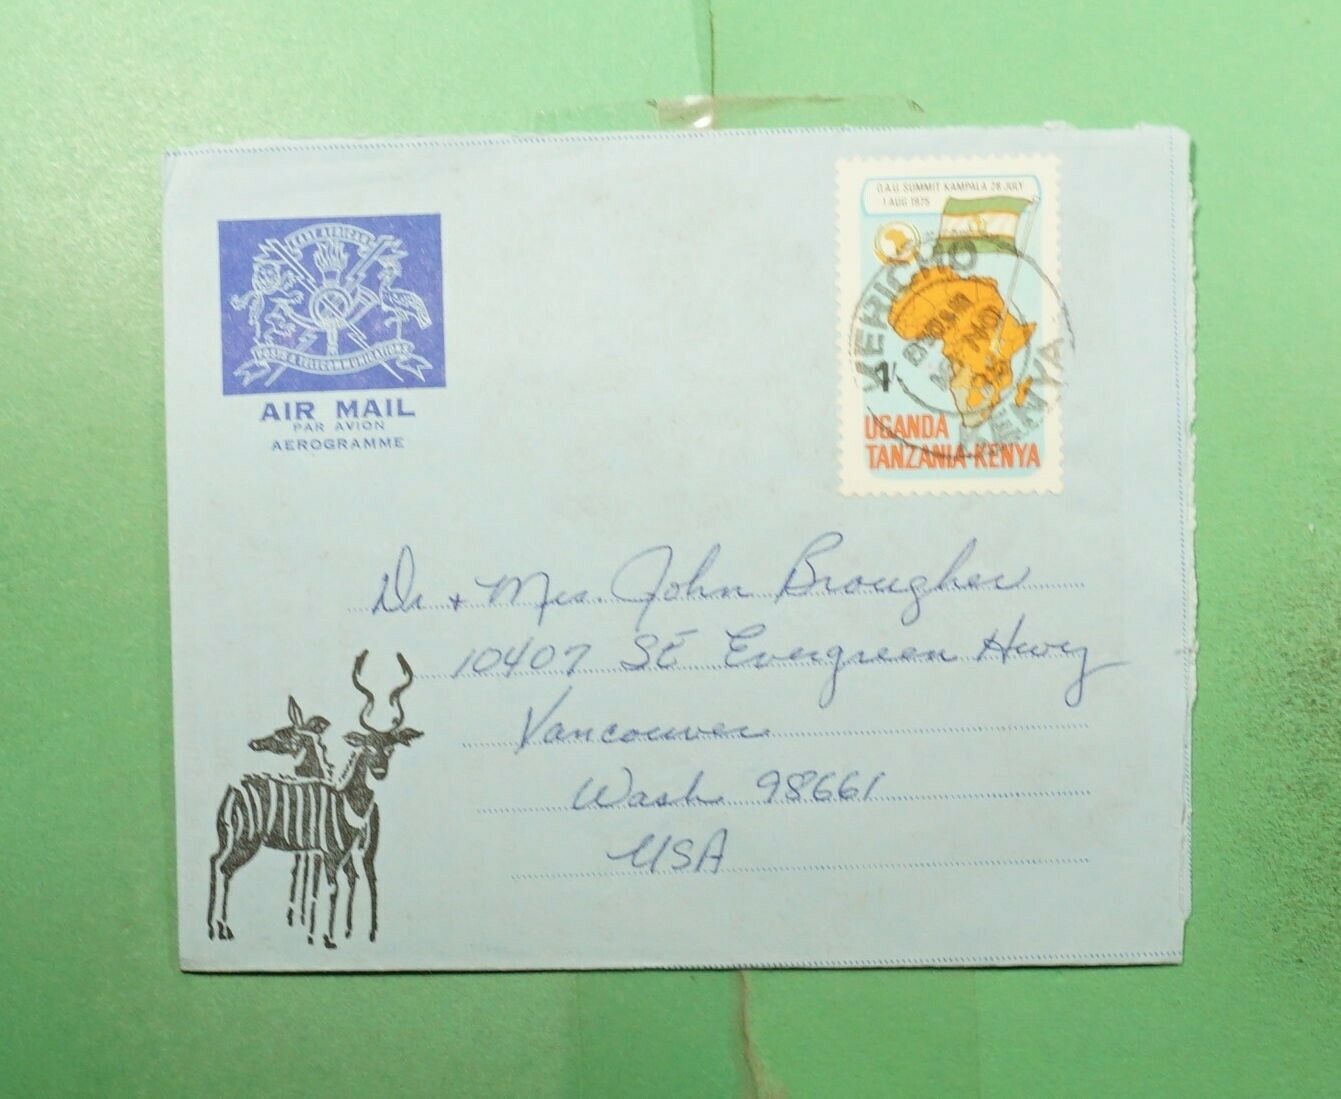 EAST AFRICAN
POSTS & TELECOMMUNICATIONS
AIR MAIL
PAR AVION
AEROGRAMME
O.A.U. SUMMIT KAMPALA 28 JULY
1 AUG 1975
1/-
UGANDA
TANZANIA-KENYA
KERICHO
KENYA
Dr + Mrs. John Brougher
10407 SE Evergreen Hwy
Vancouver
Wash 98661
USA